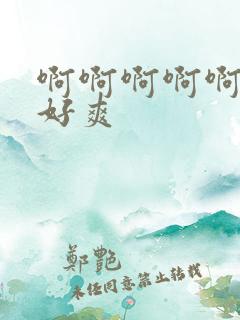 啊啊啊啊啊
好爽
鄭艷
未经同意禁止转载